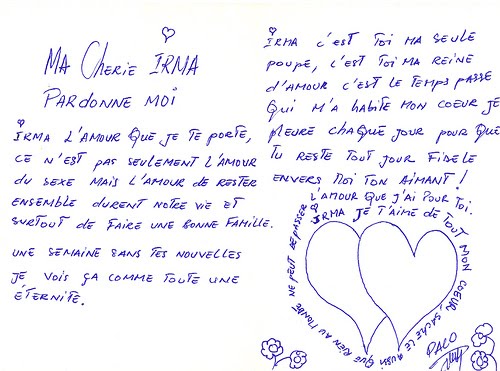 MA CHERIE IRMA
PARDONNE MOI
IRMA L'AMOUR QUE JE TE PORTE,
CE N'EST PAS SEULEMENT L'AMOUR
DU SEXE MAIS L'AMOUR DE RESTER
ENSEMBLE DURENT NOTRE VIE ET
SURTOUT DE FAIRE UNE BONNE FAMILLE.
UNE SEMAINE SANS TES NOUVELLES
JE VOIS ÇA COMME TOUTE UNE
ÉTERNITE.
IRMA C'EST TOI MA SEULE
POUPE, C'EST TOI MA REINE
D'AMOUR C'EST LE TEMPS PASSE
QUI M'A HABITE MON COEUR JE
PLEURE CHAQUE JOUR POUR QUE
TU RESTE TOUT JOUR FIDELE
ENVERS MOI TON AIMANT!
L'AMOUR QUE J'AI POUR TOI.
IRMA JE T'AIME DE TOUT MON COEUR, SACHE LE AUSSI QUE RIEN AU MONDE NE PEUT DEPASSER
PACO